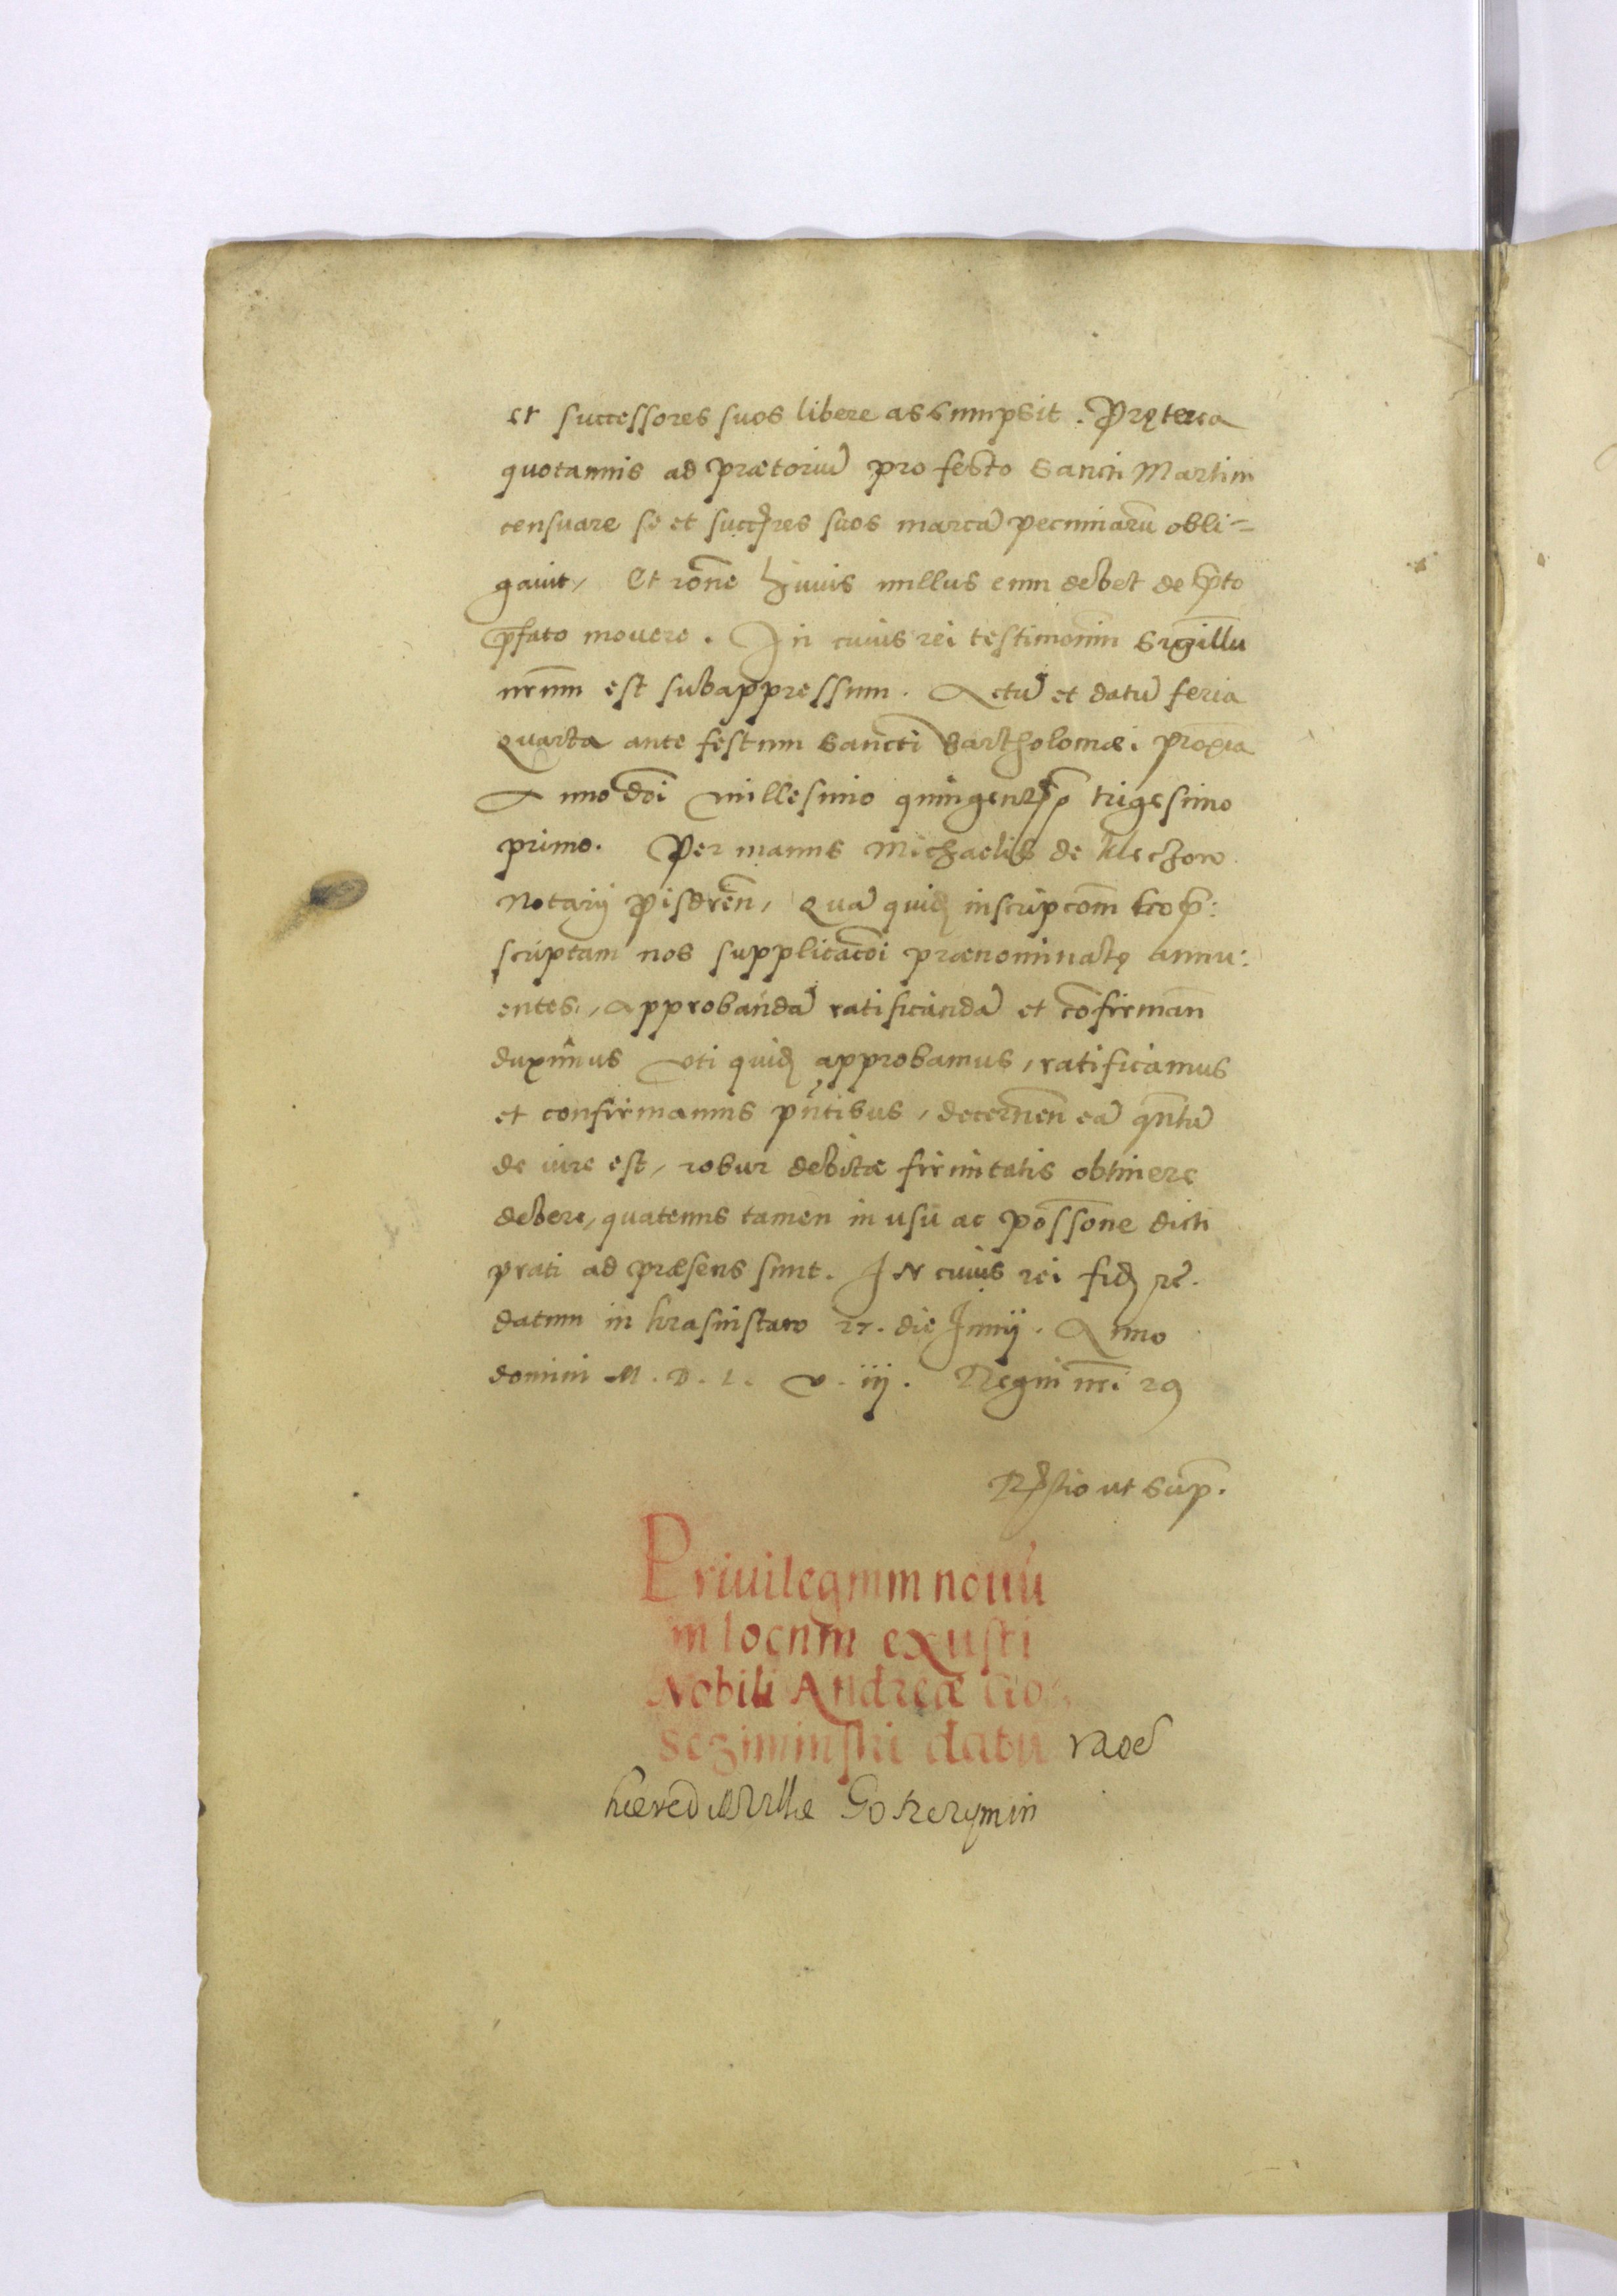 et successores suos libere assumpsit. Pręterea
quotannis ad prætoriū pro festo Sancti Martini
censuare se et succr̃es suos marcā pecuniarū obli=
gauit, Et rõne huius nullus eum debet de p̃to
p̃fato mouere. In cuius rei testimoniũ Sigillu
nr̃um est subappressum. Actū et datū feria
Quarta ante festum Sancti Bartholomæi proxĩa
Anno dñi millesimo quingentesimo trigesimo
primo. Per manus Michaelis de
Notarij, Quā quid inscripcõm
scriptam nos supplicacõi prænominatę annu:
entes, approbandā ratificandā et cõfirmañ
duximus vti quid approbamus, ratificamus
et confirmamus pñtibus, decernẽn eā qñtū
de iure est, robur debitæ firmitatis obtinere
debere, quatenus tamen in usū ac possone dicti
prati ad præsens sunt. IN cuius rei fid rē.
datum in krasnistaw 27. die Junij. Anno
domini M. D. L. v. iij. Regni nr̃i 29
Rl̃tio ut sup̃.
Priuilegium nouū
in locum exusti
Nobili Andreæ Go
sczziminski datū
hæred villæ Gosczymin